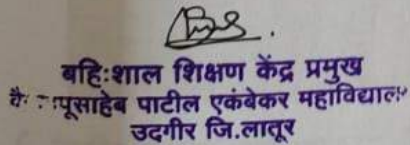 बहि:शाल शिक्षण केंद्र प्रमुख
पाटील एकंबेकर महाविद्यालय
उदगीर जि.लातूर